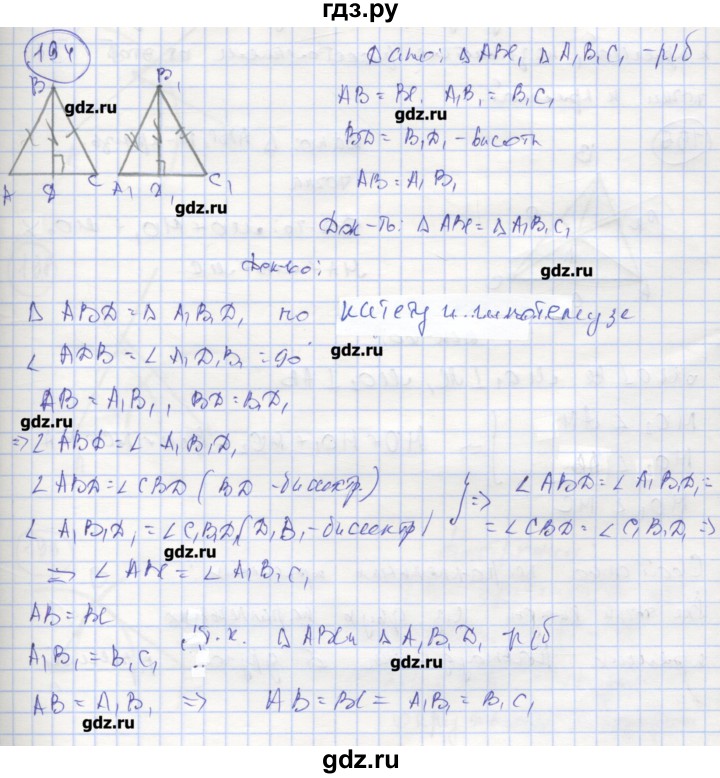 гдз.ру
194
Дано: △ ABC, △ A₁B₁C₁ - р/б
AB = BC, A₁B₁ = B₁C₁
gdz.ru
gdz.ru
BD = B₁D₁ - высоты
AB = A₁B₁
Док-ть: △ ABC = △ A₁B₁C₁
B B₁
A D C A₁ D₁ C₁
gdz.ru
Док-во:
gdz.ru
△ ABD = △ A₁B₁D₁ по катету и гипотенузе
∠ ADB = ∠ A₁D₁B₁ = 90
gdz.ru
AB = A₁B₁, BD = B₁D₁
gdz.ru
=> ∠ ABD = ∠ A₁B₁D₁
∠ ABD = ∠ CBD (BD - биссектр.)
∠ A₁B₁D₁ = ∠ C₁B₁D₁ (D₁B₁ - биссектр)
} => ∠ ABD = ∠ A₁B₁D₁ =
= ∠ CBD = ∠ C₁B₁D₁ =>
gdz.ru
=> ∠ ABC = ∠ A₁B₁C₁
AB = BC
A₁B₁ = B₁C₁, т.к. △ ABC и △ A₁B₁D₁ р/б
gdz.ru
AB = A₁B₁ => AB = BC = A₁B₁ = B₁C₁
gdz.ru
gdz.ru